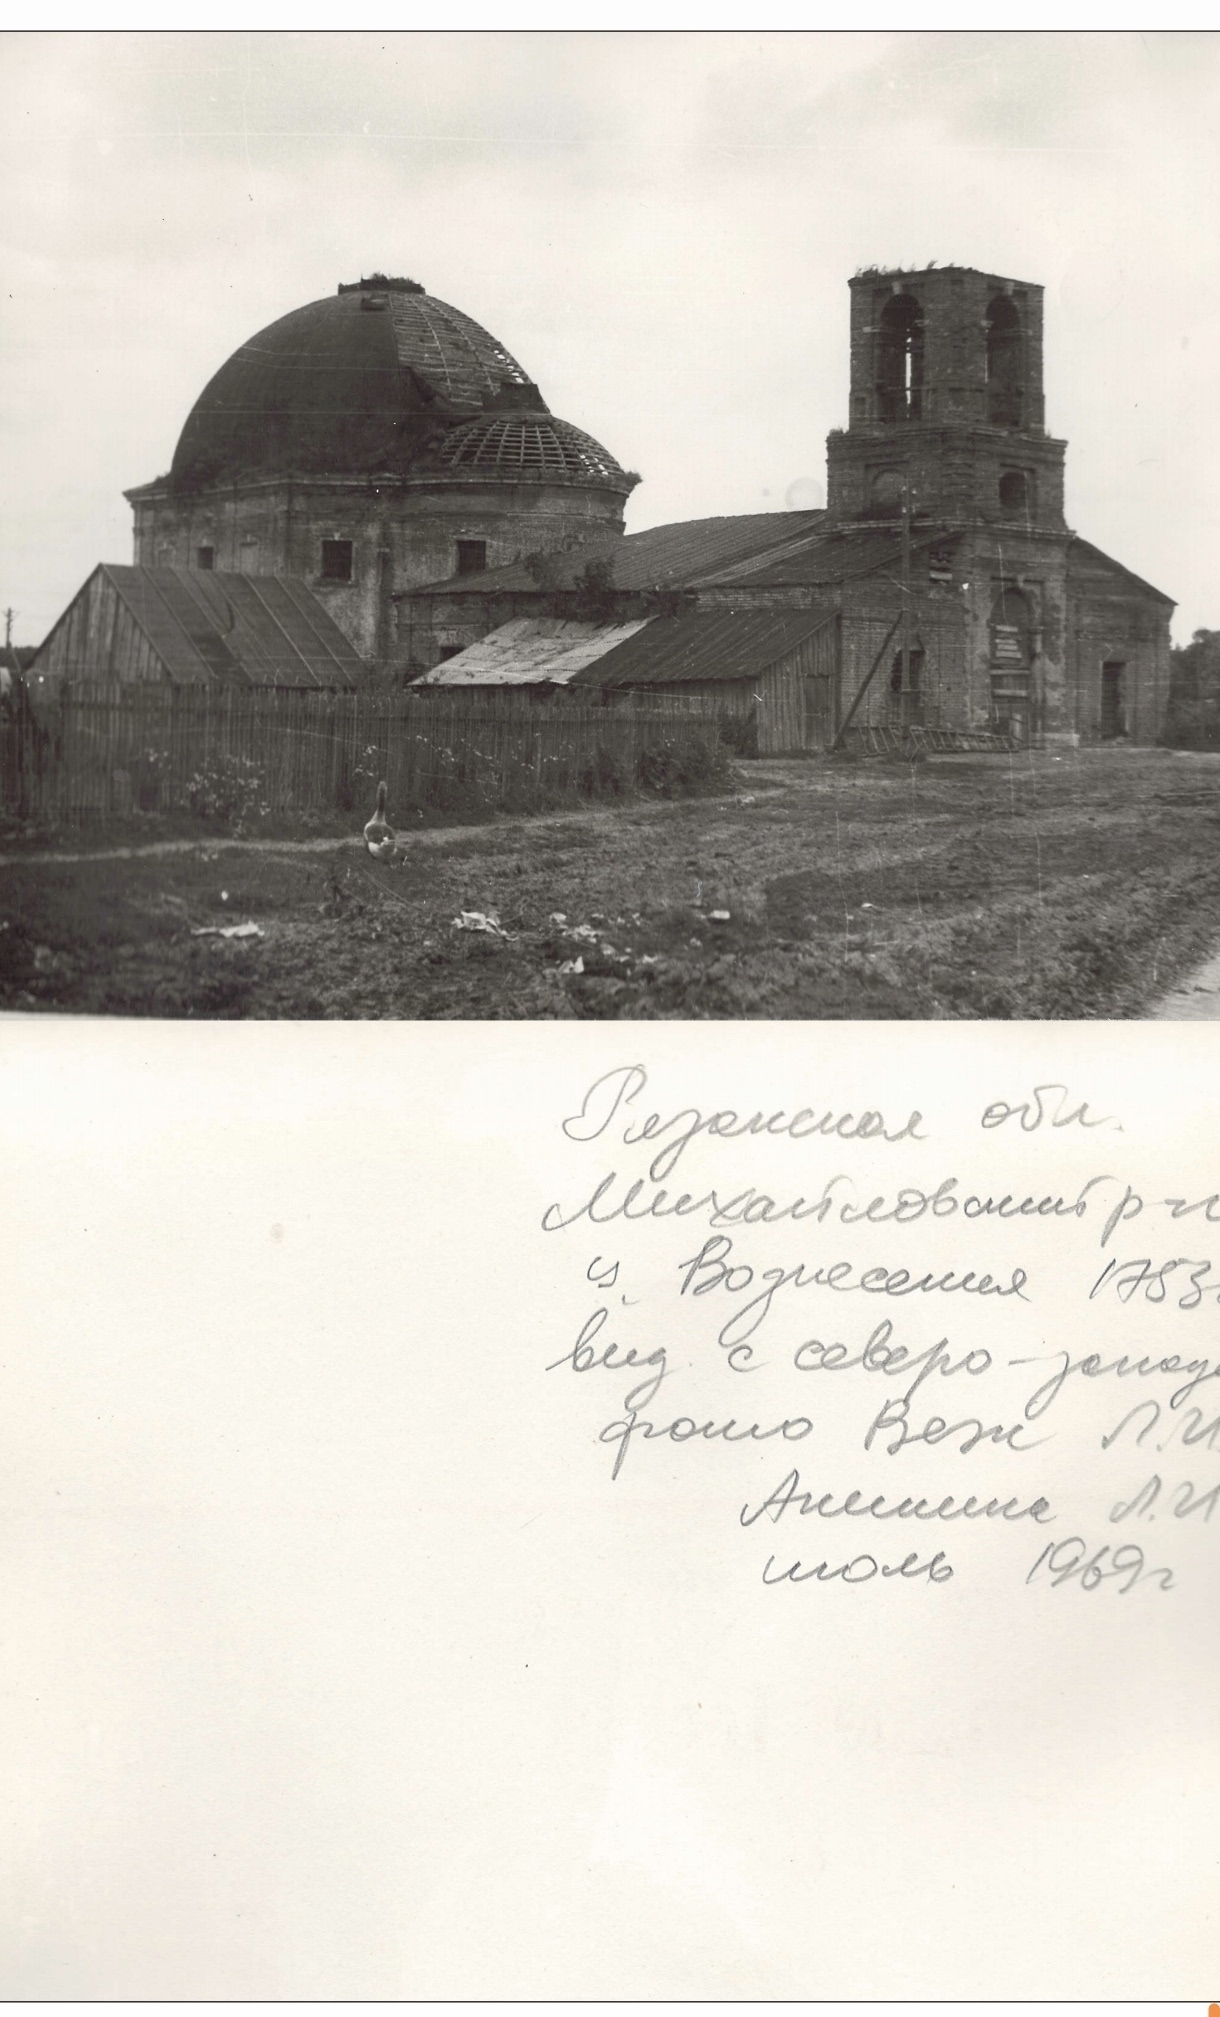 Рязанская обл.
Михайловский р-н
ц. Вознесения 1753
вид с северо-запада
фото Веж Л.И.
Аписина Л.И
июль 1969г